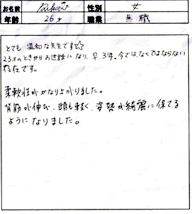 お名前 性別 女
年齢 26才 職業 無職
とても 温和な先生です☆
23才のときからお世話になり、早、3年。今では、なくてはならない
存在です。
柔軟性がかなり上がりました。
背筋が伸び、頭も軽く、姿勢が綺麗に保てる
ようになりました。